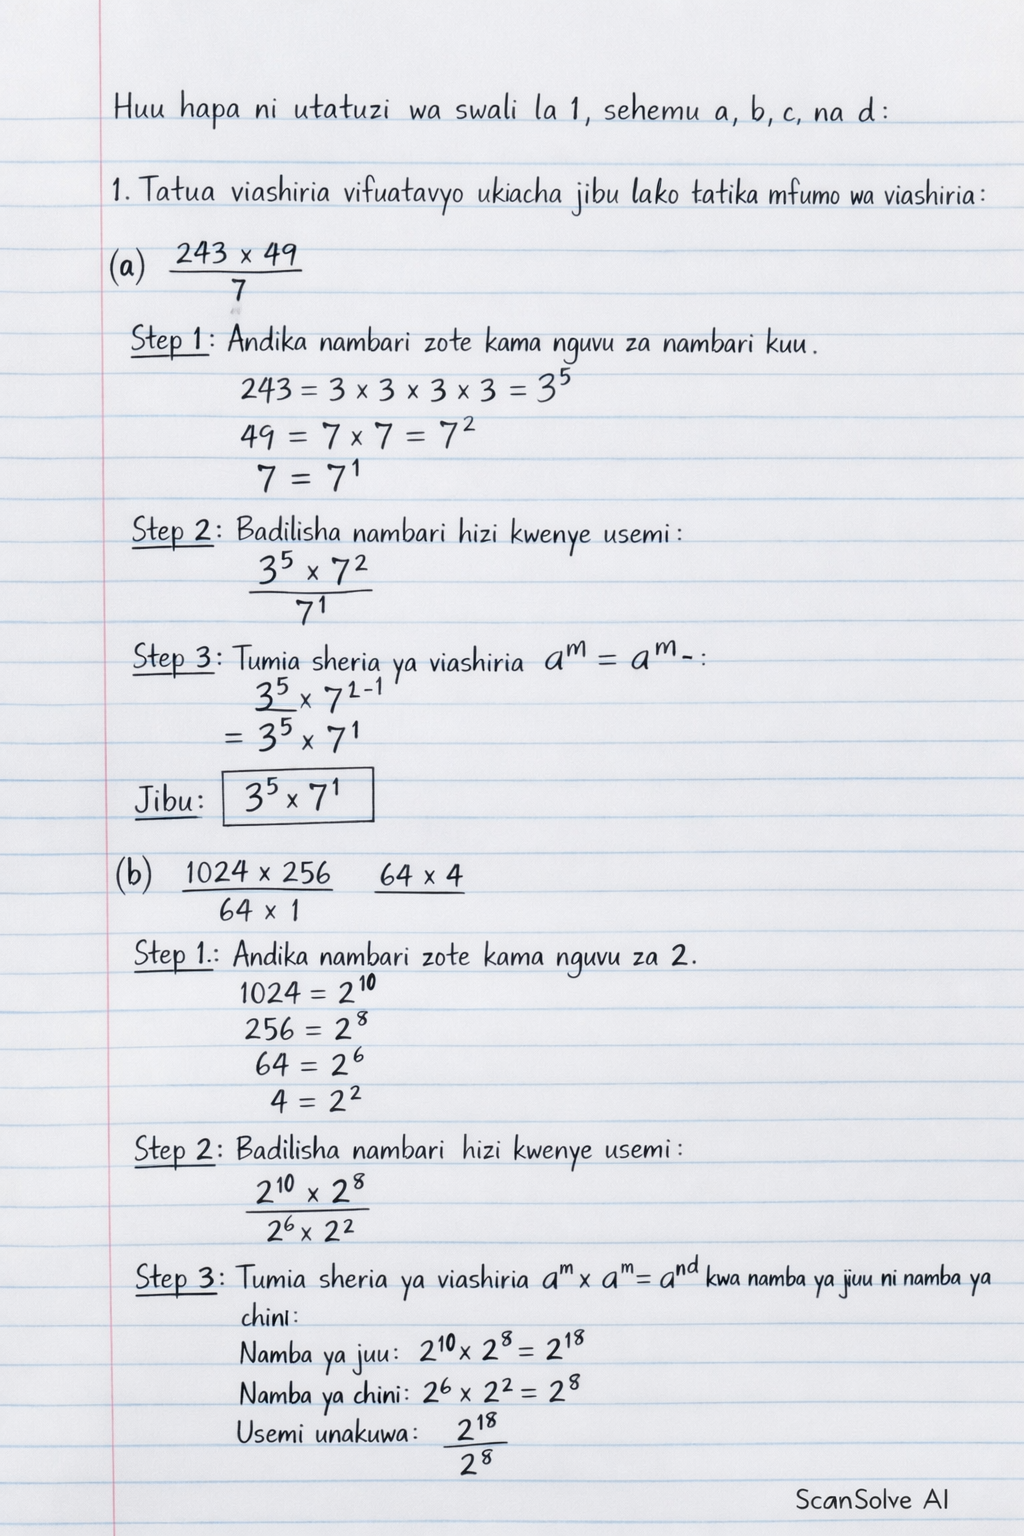 Huu hapa ni utatuzi wa swali la 1, sehemu a, b, c, na d:
1. Tatua viashiria vifuatavyo ukiacha jibu lako tatika mfumo wa viashiria:
(a) 243 × 49
7
Step 1: Andika nambari zote kama nguvu za nambari kuu.
243 = 3 × 3 × 3 × 3 = 3⁵
49 = 7 × 7 = 7²
7 = 7¹
Step 2: Badilisha nambari hizi kwenye usemi:
3⁵ × 7²
7¹
Step 3: Tumia sheria ya viashiria aᵐ = aᵐ-:
3⁵ × 7²⁻¹
= 3⁵ × 7¹
Jibu: 3⁵ × 7¹
(b) 1024 × 256 64 × 4
64 × 1
Step 1.: Andika nambari zote kama nguvu za 2.
1024 = 2¹⁰
256 = 2⁸
64 = 2⁶
4 = 2²
Step 2: Badilisha nambari hizi kwenye usemi:
2¹⁰ × 2⁸
2⁶ × 2²
Step 3: Tumia sheria ya viashiria aᵐ × aᵐ = aⁿᵈ kwa namba ya jiuu ni namba ya
chini:
Namba ya juu: 2¹⁰ × 2⁸ = 2¹⁸
Namba ya chini: 2⁶ × 2² = 2⁸
Usemi unakuwa: 2¹⁸
2⁸
ScanSolve AI